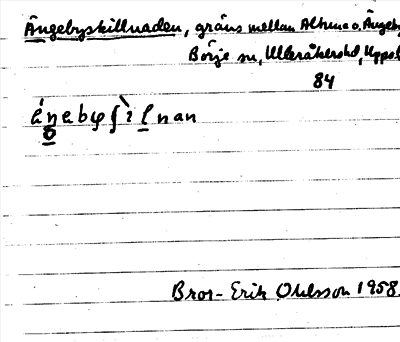 Ängebyskillnaden, gräns mellan Altuna o. Ängeby
Börje sn, Ulleråkershd, Uppsal
84
Bror-Erik Ohlsson 1958